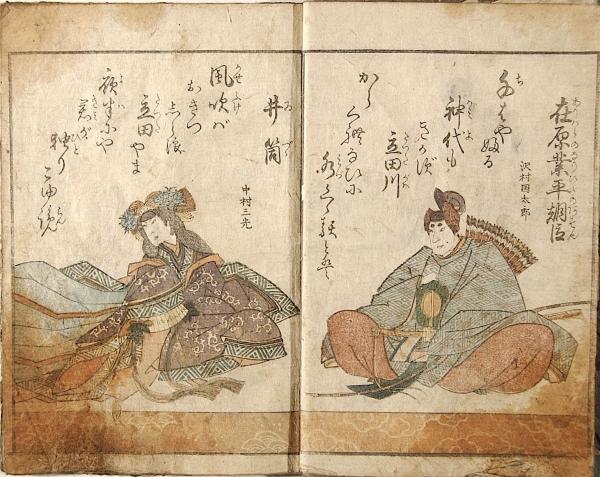 在原業平朝臣
沢村国太郎
千はやふる
神代も
きかず
立田川
からくれなゐに
水くゝるとは
井筒
中村三光
風吹ば
おきつ
しら浪
立田やま
夜半にや
君が
独り
こゆ覧